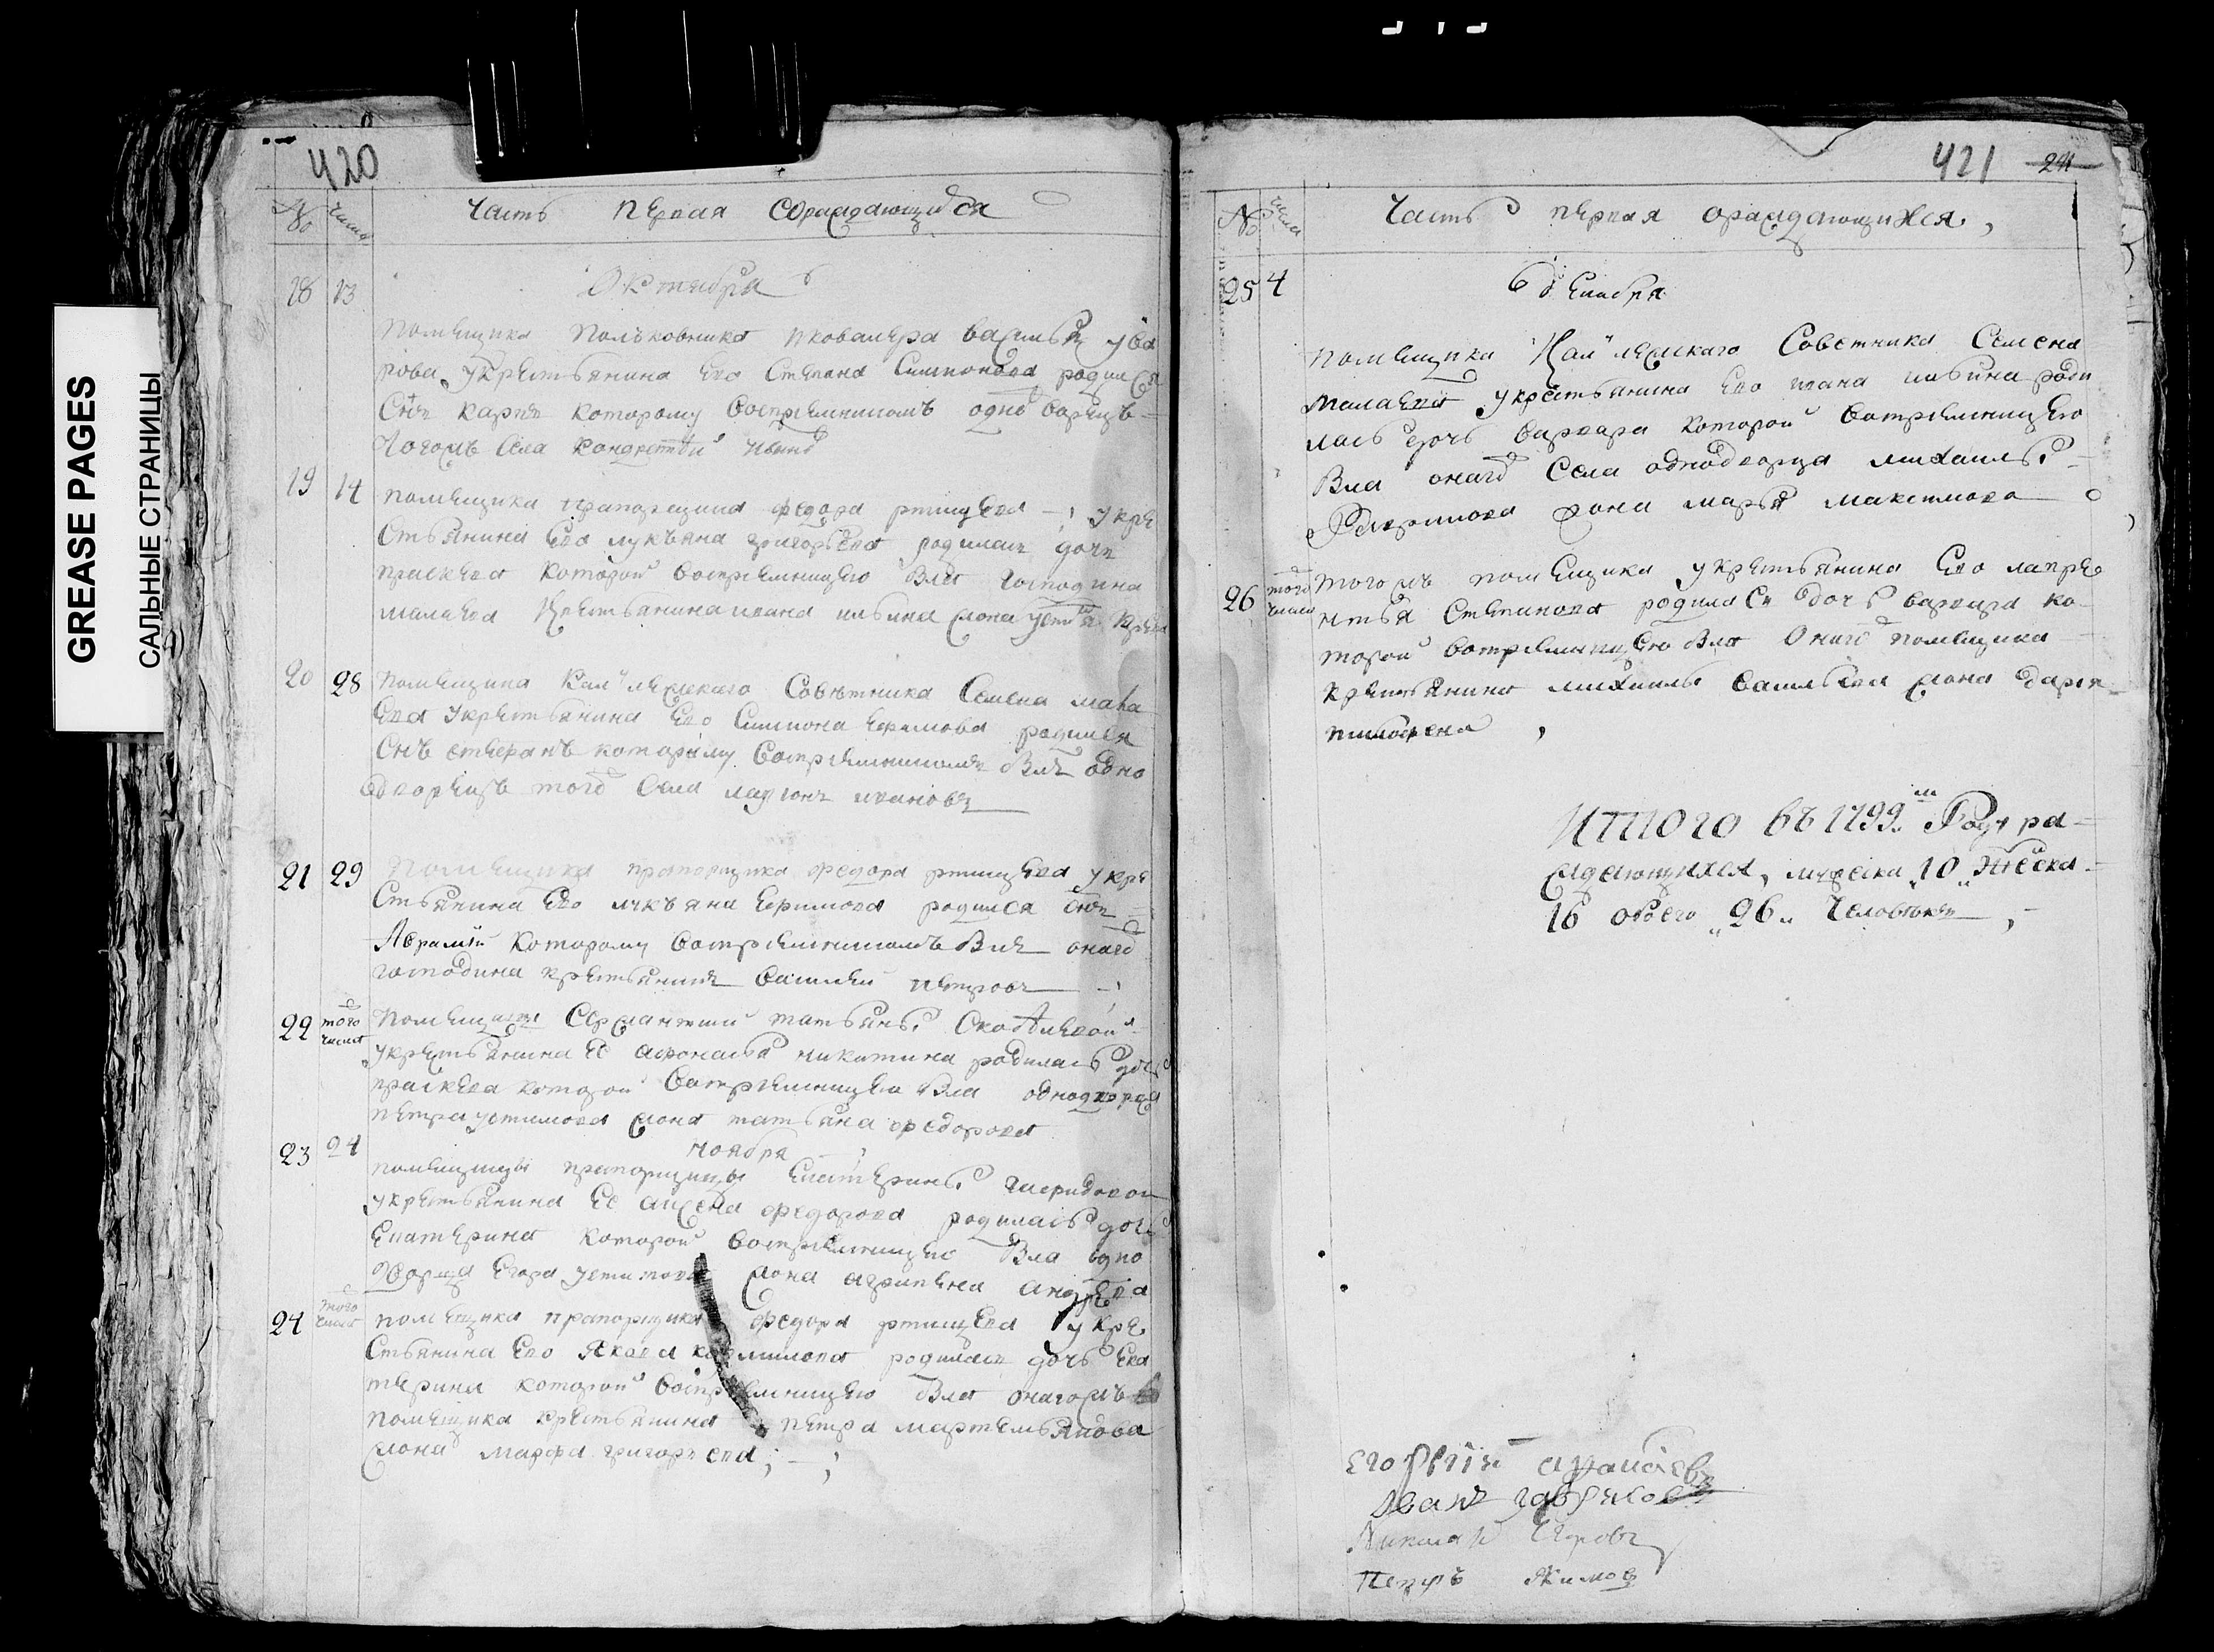 GREASE PAGES
САЛЬНЫЕ СТРАНИЦЫ
420
№ Число Часть первая ораждающихся
Октября
18 13
помещика полъковника икавалера василья ува
рова укрестьянина ево степана симионова родился
снъ карпъ которому восприемникомъ одно дворецъ
тогожъ села кондратей
19 14 помещика прапорщика федора ртищева укре
стьянина ево лукъяна григорьева родилась дочь
праскева которой восприемницею была господина
малаева крестьянина ивана ильина жена
20 28 помещика калежскаго советника семена мала
ева укрестьянина ево симиона ефимова родился
снъ стефанъ которому восприемникомъ былъ одно
дворецъ того села ларионъ ивановъ
21 29 помещика прапорщика федора ртищева укре
стьянина ево лукъяна ефимова родился снъ
Аврамъ которому восприемникомъ былъ онаго
господина крестьянинъ василей петровъ
22 того числа помещицы сержантши татьяны
укрестьянина ее афонасья никитина родилась дочь
праскева которой восприемницею была однодворца
петра устимова жена татьяна федорова
ноября
23 24
помещицы прапорщицы екатерины
укрестьянина ее федорова родилась дочь
екатерина которой восприемницею была одно
дворца егора устимова жена агрипена андрева
24 того числа помещика прапорщика федора ртищева укре
стьянина ево якова родилась дочь ека
терина которой восприемницею была онагожъ
помещика крестьянина петра мартемьянова
жена марфа григорьева
421 241
№ числа Часть первая ораждающихся
25 4 декабря
помещика калежскаго советника семена
малаева укрестьянина ево ивана ильина роди
лась дочь варвара которой восприемницею
была онаго села однодворца михаилы
жена марья максимова
26 того числа тогожъ помещика укрестьянина ево лавре
нтья степанова родилася дочь варвара ко
торой восприемницею была онаго помещика
крестьянина михаилы васильева жена дарья
Итого въ 1799м году ра
ждающихся мужеска 10 женска
16 обоего 26 человекъ
Иванъ
Николай Егоровъ
Петръ Якимов